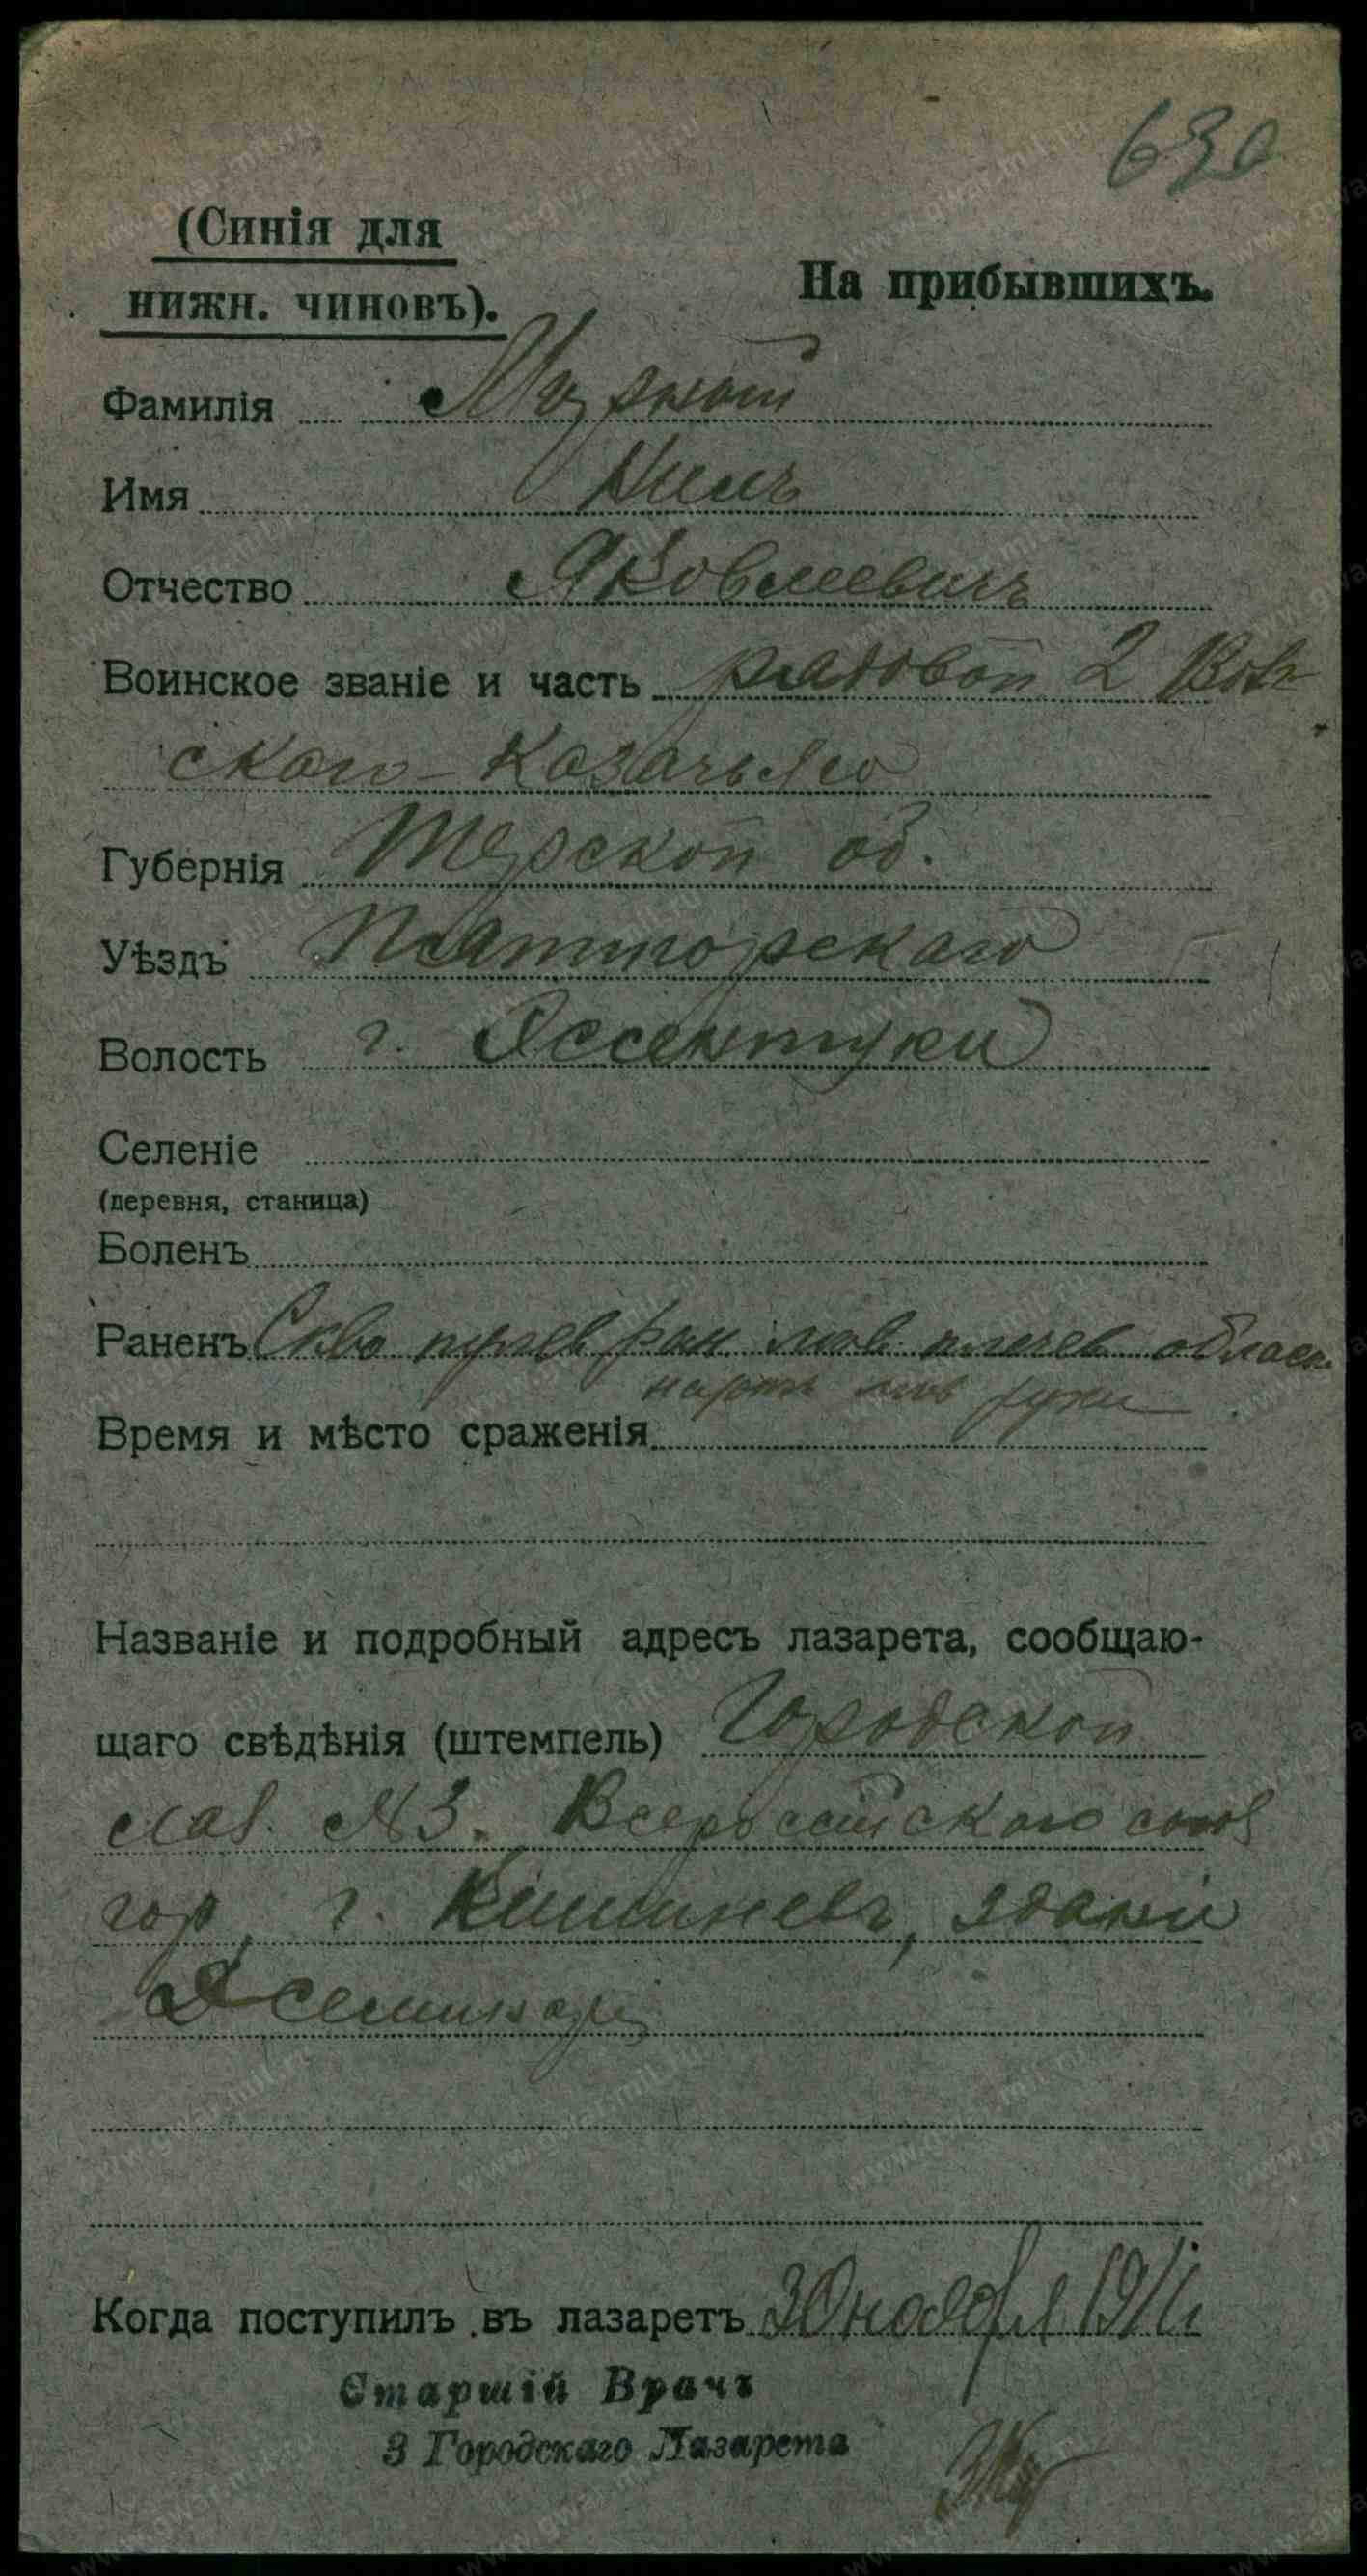 630
(Синія для
нижн. чиновъ).
На прибывшихъ.
Фамилія Мурный
Имя Нилъ
Отчество Яковлевичъ
Воинское званіе и часть рядовой 2 Вол
скаго-Казачьяго
Губернія Терской об.
Уѣздъ Пятигорскаго
Волость г. Ессентуки
Селеніе
(деревня, станица)
Боленъ
Раненъ Скво пулев ран лев плечев област
лев руки
Время и мѣсто сраженія
Названіе и подробный адресъ лазарета, сообщаю-
щаго свѣдѣнія (штемпель) Городской
лаз. №3. Всероссийскаго союз
гор, г. Кишиневъ, здани
Д семинар
Когда поступилъ въ лазаретъ 30 ноября
Старшій Врачъ
3 Городскаго Лазарета